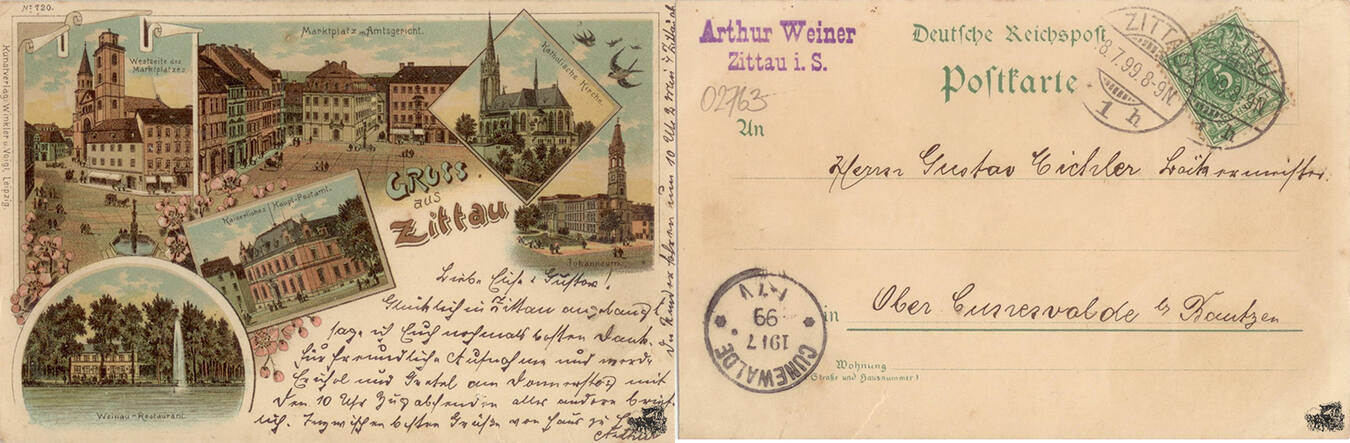 No 720.
Kunstverlag Winkler u. Voigt, Leipzig.
Westseite des
Marktplatzes
Marktplatz m. Amtsgericht.
Katholische Kirche.
Kaiserliches Haupt-Postamt.
Johanneum.
Gruss
aus
Zittau
Weinau-Restaurant.
Liebe Elise & Gustav!
Glücklich in Zittau angelangt
sage ich Euch nochmals besten Dank
für freundliche Aufnahme und werde
und Gretel am Donnerstag mit
den 10 Uhr Zug absenden alles andere
Inzwischen besten Grüße von Haus zu
Arthur
um 10 Uhr
Arthur Weiner
Zittau i. S.
02763
Deutsche Reichspost
Postkarte
ZITTAU
8.7.99.8-9N.
1 h
5
An
Herrn Gustav Eichler Bäckermeister.
in
Ober Cunewalde b/ Bautzen
Wohnung
(Straße und Hausnummer)
CUNEWALDE
19 7
99
1-7 V